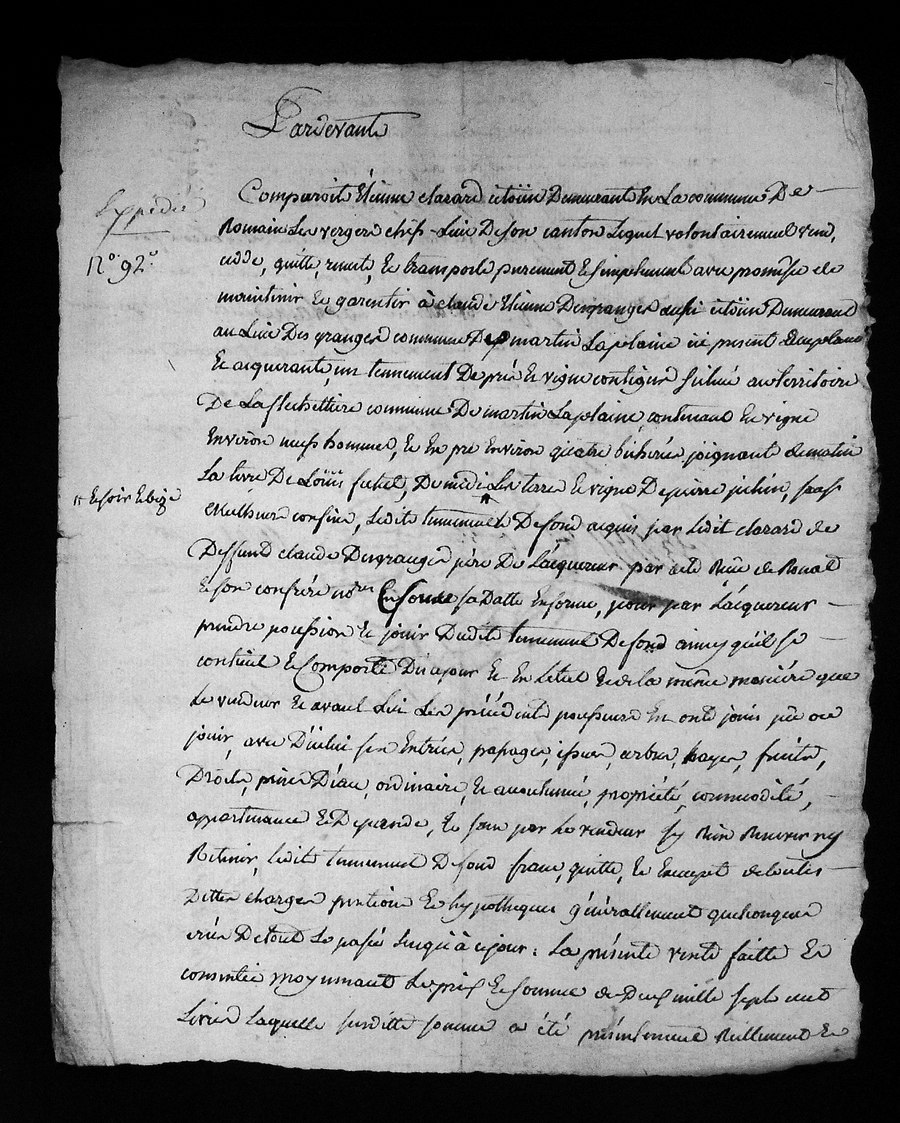 Pardevant
Expédié
N.º 92.º
Comparoit Etienne clarard citoien Demeurant En La commune De
Romain Les vergers chef-Lieu De son canton Lequel volontairement vend,
cedde, quitte, remet, Et transporte purement Et simplement avec promesse de
maintenir Et garentir à claude Etienne Desgranges aussi citoien Demeurant
au Lieu Des granges commune De martin La plaine ici present acceptant
Et acquerant, un tennement De pré Et vigne contigus situé au territoire
De La flechettiere commune De martin La plaine, contenant En vigne
Environ neuf hommes, Et En pré Environ quatre bicherées joignant de matin
La terre De Loüis futel, De midi Les terre Et vigne De pierre juhin, sauf
Et soir Et bize
meilleurs confins, Ledit tennement De fond acquis par Ledit clarard de
Deffunt claude Desgranges père De L'acquereur par acte Reçu de
Et son confrère no.res En forme sa Datte En forme, pour par L'acquereur
prendre possession Et jouir Dudit tennement De fond ainsy qu'il se
contient Et Comporte De ce jour Et En L'etat Et de la même manière que
Le vendeur Et avant Lui Les précédents possesseurs En ont jouis pû ou
jouir, avec D'icelui ses Entrées, passages, issues, arbres, hayes, fruits,
Droits, prises D'eau, ordinaire, Et accoutumé, propriété, commodité,
appartenance Et Dépende, Et sans par Le vendeur s'y Rien Reserver ny
Retenir, Ledit tennement De fond franc, quitte, Et Exempt de toutes
Dettes charges pentions Et hypotheques généralement quelconques
créés De tout Le passé Jusqu'à ce jour : La présente vente faitte Et
consentie moyennant Le prix Et somme de Deux mille sept cent
Livres Laquelle susditte somme a été présentement Reellement Et